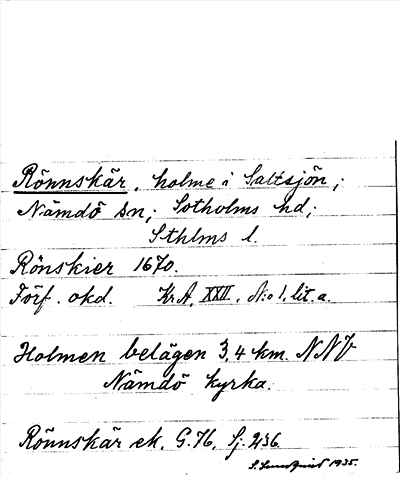 Rönnskär, holme i Saltsjön;
Nämdö sn; Sotholms hd;
Sthlms l.
Rönskier 1670.
Förf. okd. KrA, XXII, N:o 1, lit. a.
Holmen belägen 3,4 km. NNV
Nämdö kyrka.
Rönnskär ek. G.76, Sj. 236
S. Lundqvist 1935.